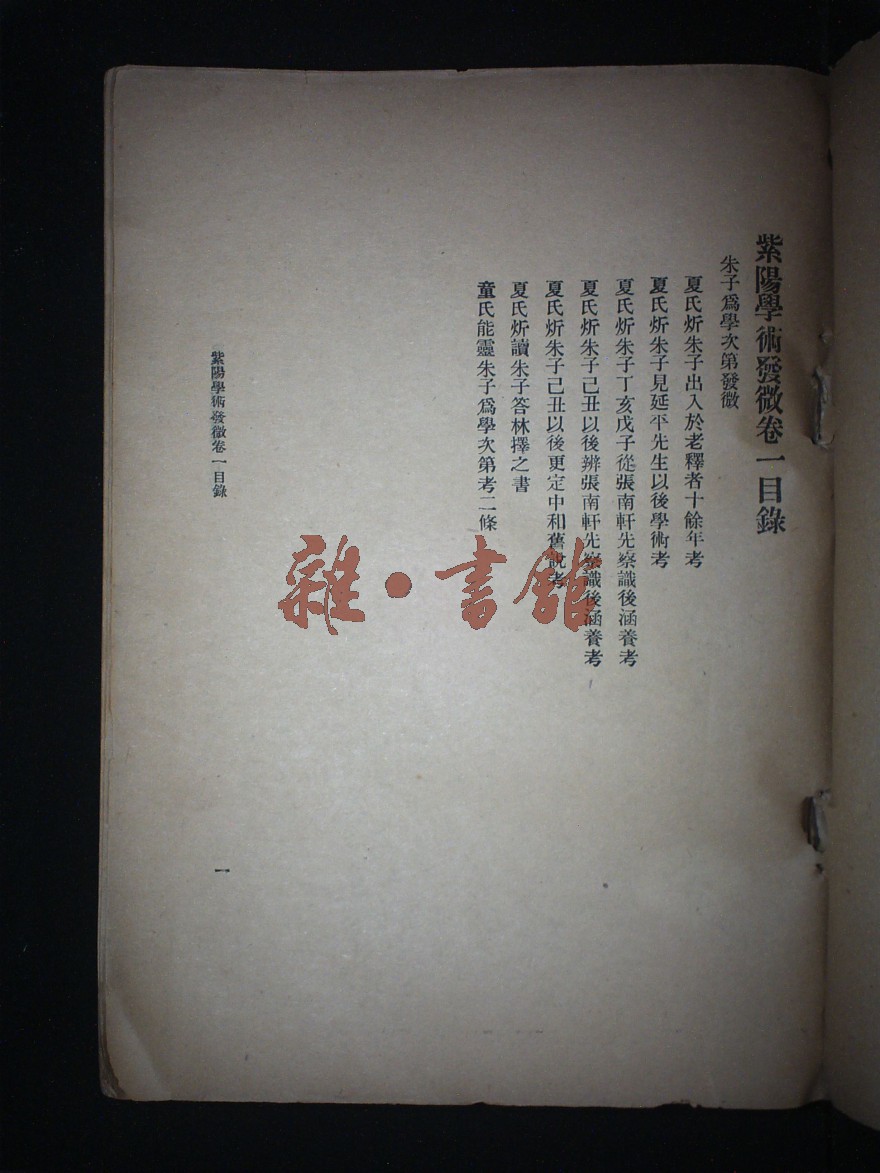 紫陽學術發微卷一目錄
朱子爲學次第發微
夏氏炘朱子出入於老釋者十餘年考
夏氏炘朱子見延平先生以後學術考
夏氏炘朱子丁亥戊子從張南軒先察識後涵養考
夏氏炘朱子己丑以後辨張南軒先察識後涵養考
夏氏炘朱子己丑以後更定中和舊說考
夏氏炘讀朱子答林擇之書
童氏能靈朱子爲學次第考二條
紫陽學術發微卷一目錄
一
雜·書館